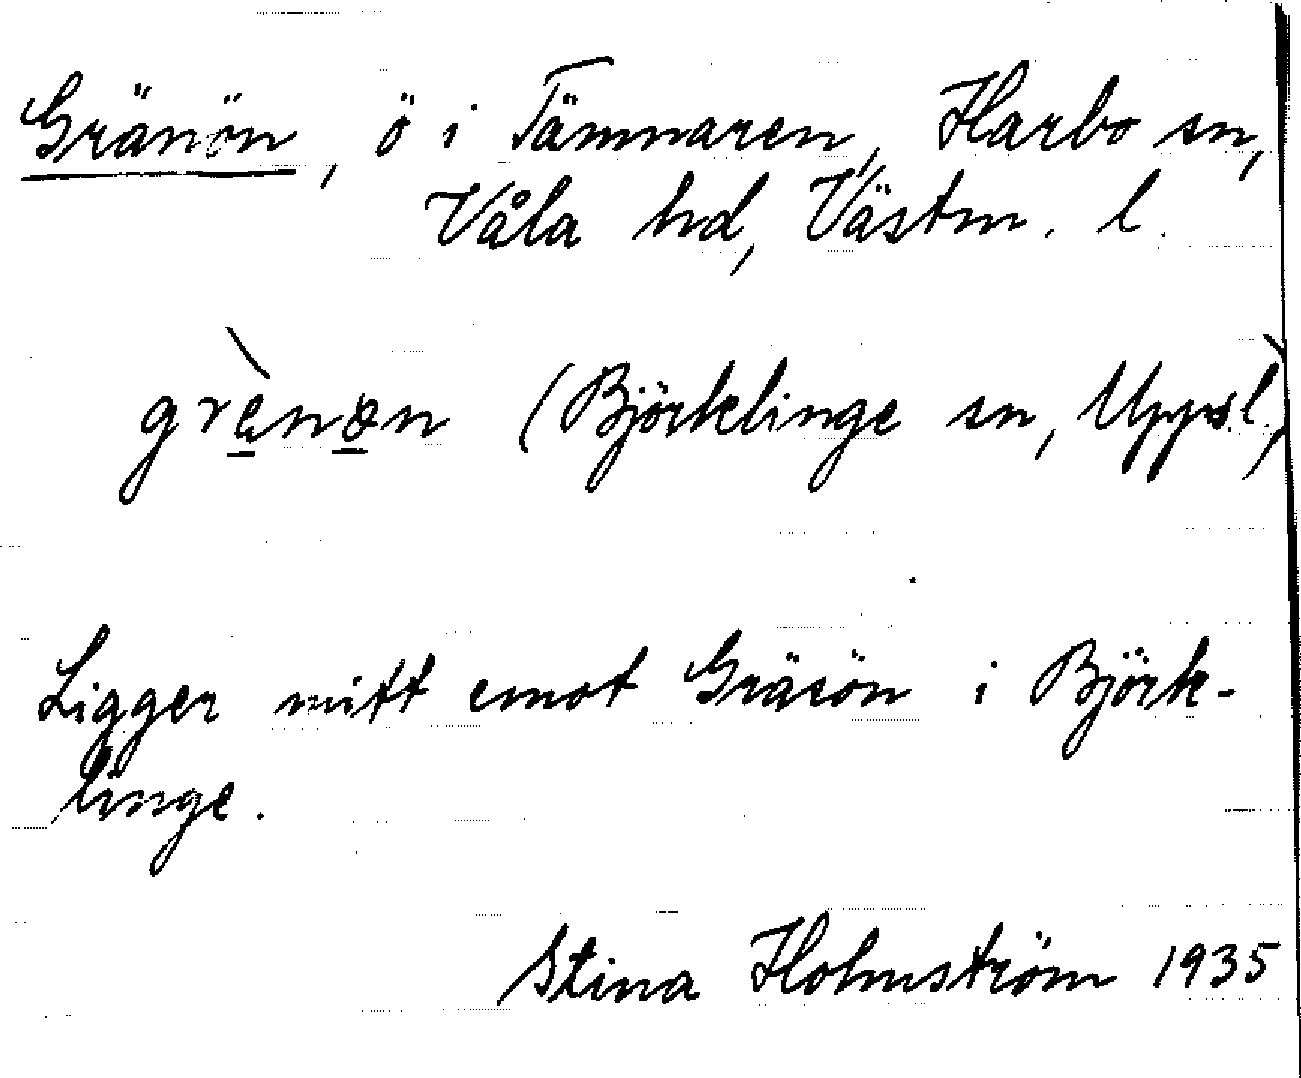 Gränön, ö i Tämnaren, Harbo sn,
Våla hd, Västm. l.
grènøn (Björklinge sn, Upps. l.)
Ligger mitt emot Gräsön i Björk-
linge.
Stina Holmström 1935